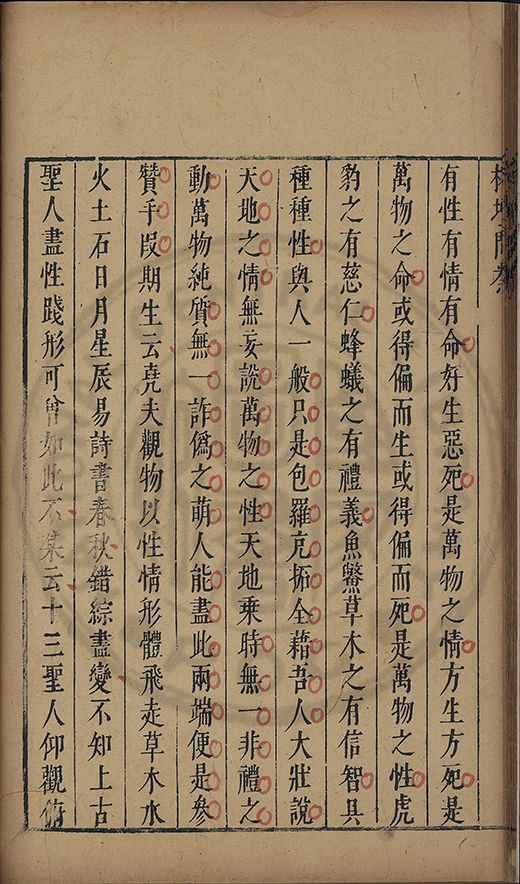 有性有情有命好生惡死是萬物之情方生方死是
萬物之命或得偏而生或得偏而死是萬物之性虎
豹之有慈仁蜂蟻之有禮義魚鱉草木之有信智具
種種性與人一般只是包羅充拓全藉吾人大壯說
天地之情無妄說萬物之性天地乘時無一非禮之
動萬物純質無一詐偽之萌人能盡此兩端便是參
贊手段期生云堯夫觀物以性情形體飛走草木水
火土石日月星辰易詩書春秋錯綜盡變不知上古
聖人盡性踐形可曾如此不某云十三聖人仰觀俯